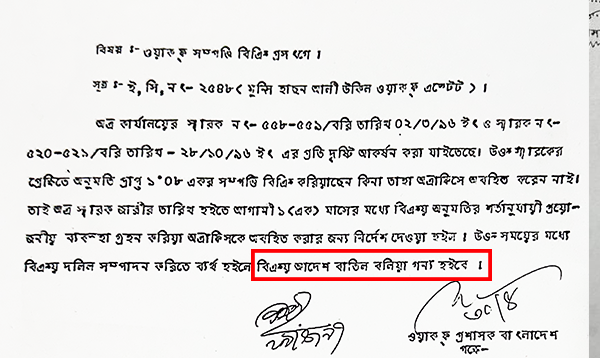 বিষয় :- ওয়াকফ সম্পত্তি বিক্রি প্রসংগে ।
সূত্র :- ই, সি, নং- ২৫৪৮ ( মুন্সি হাছন আলী উকিল ওয়াকফ এস্টেট ) ।
অত্র কার্যালয়ের স্মারক নং- ৫৫৮-৫৫৯/বরি তারিখ 0২/৩/৯৬ ইং ও স্মারক নং-
৫২০-৫২১/বরি তারিখ - ২৮/১0/৯৬ ইং এর প্রতি দৃষ্টি আকর্ষন করা যাইতেছে। উক্ত স্মারকের
প্রেক্ষিতে অনুমতি প্রাপ্ত ১·0৮ একর সম্পত্তি বিক্রি করিয়াছেন কিনা তাহা অত্রাফিসে অবহিত করেন নাই।
তাই অত্র স্মারক জারীর তারিখ হইতে আগামী ১ (এক) মাসের মধ্যে বিক্রয় অনুমতির শর্তানুযায়ী প্রয়ো-
জনীয় ব্যবস্হা গ্রহন করিয়া অত্রাফিসকে অবহিত করার জন্য নির্দেশ দেওয়া হইল । উক্ত সময়ের মধ্যে
বিক্রয় দলিল সম্পাদন করিতে ব্যর্থ হইলে বিক্রয় আদেশ বাতিল বলিয়া গন্য হইবে ।
ওয়াকফ প্রশাসক বাংলাদেশ
পক্ষে-